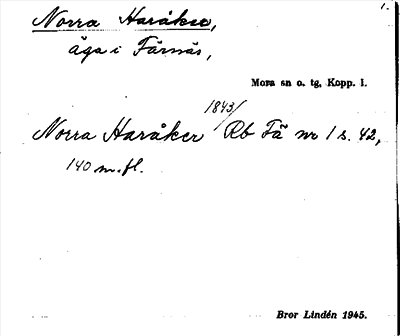 1.
Norra Haråker,
äga i Färnäs,
Mora sn o. tg, Kopp. l.
Norra Haråker 1843/ Rb Fä nr 1 s. 42,
140 m.fl.
Bror Lindén 1945.